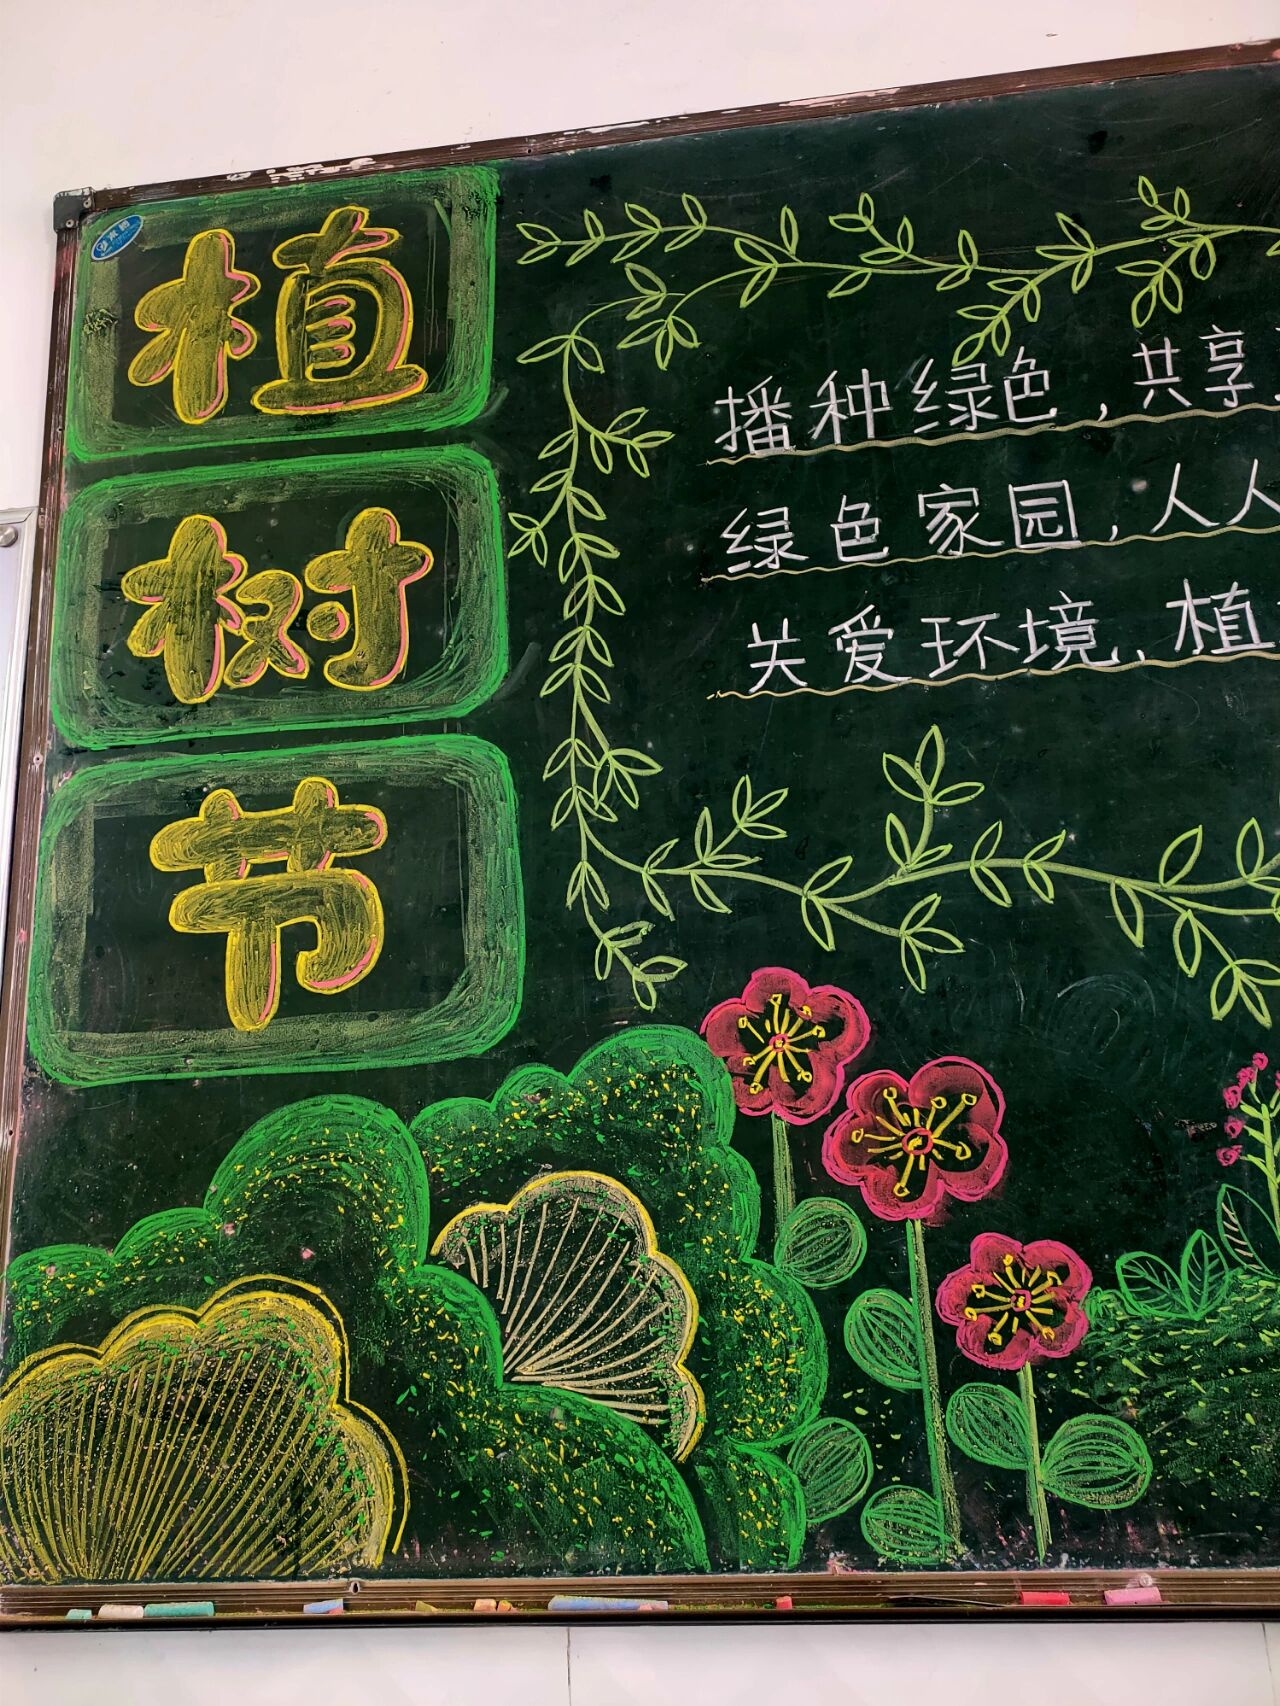 植
树
节
播种绿色,共享
绿色家园,人人
关爱环境,植